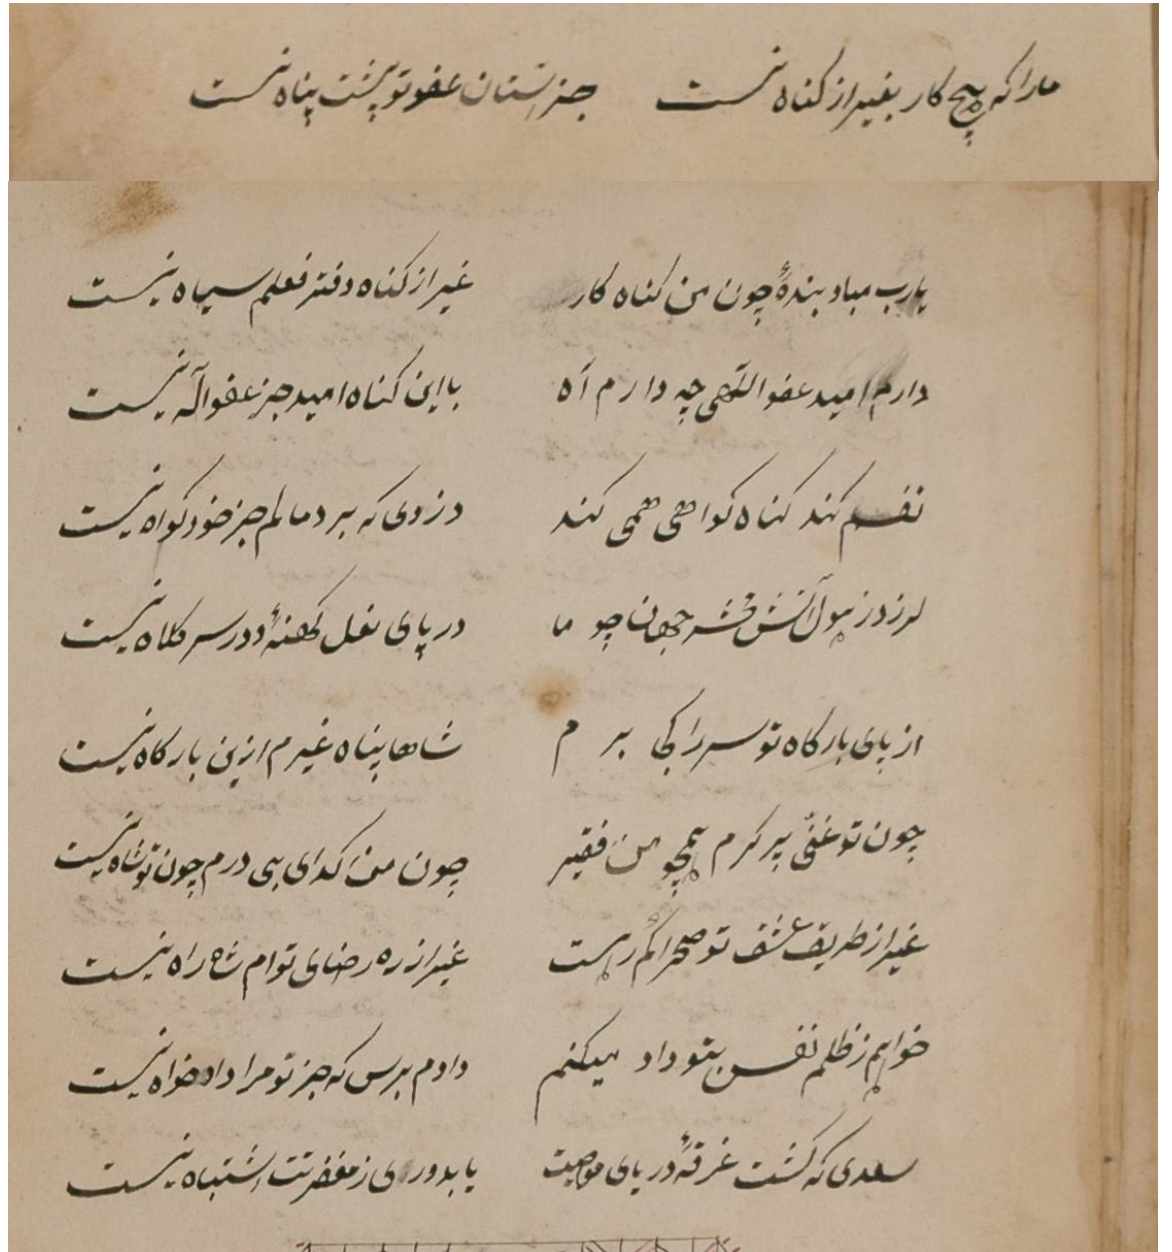 مارا که هیچ کار بغیر از کناه نیست جز استان عفو تو پشت پناه نیست
یارب مباد بندهٔ چون من کناه کار غیر از کناه دفتر فعلم سیاه نیست
دارم امید عفو الٓهی چه دارم آه با این کناه امید جز عفو اله نیست
نفسم کند کناه کواهی همی کند دزدی که برد مالم جز خود کواه نیست
لرزد ز هول آتش حشر جهان چو ما در پای نعل کهنهٔ و در سر کلاه نیست
از پای بارکاه تو سر را کجا برم شاها پناه غیرم ازین بارکاه نیست
چون تو غنّی پر کرم همچو من فقیر چون من کدای بی درم چون تو شاه نیست
غیر از طریق عشق تو صحرا کم رهست غیر از ره رضای توام شاه راه نیست
خواهم ز ظلم نفس بتو داد میکنم دادم برس که جز تو مرا دادخواه نیست
سعدی که کشت غرقهٔ دریای موصیت یابد وری ز مغفرتت اشتباه نیست